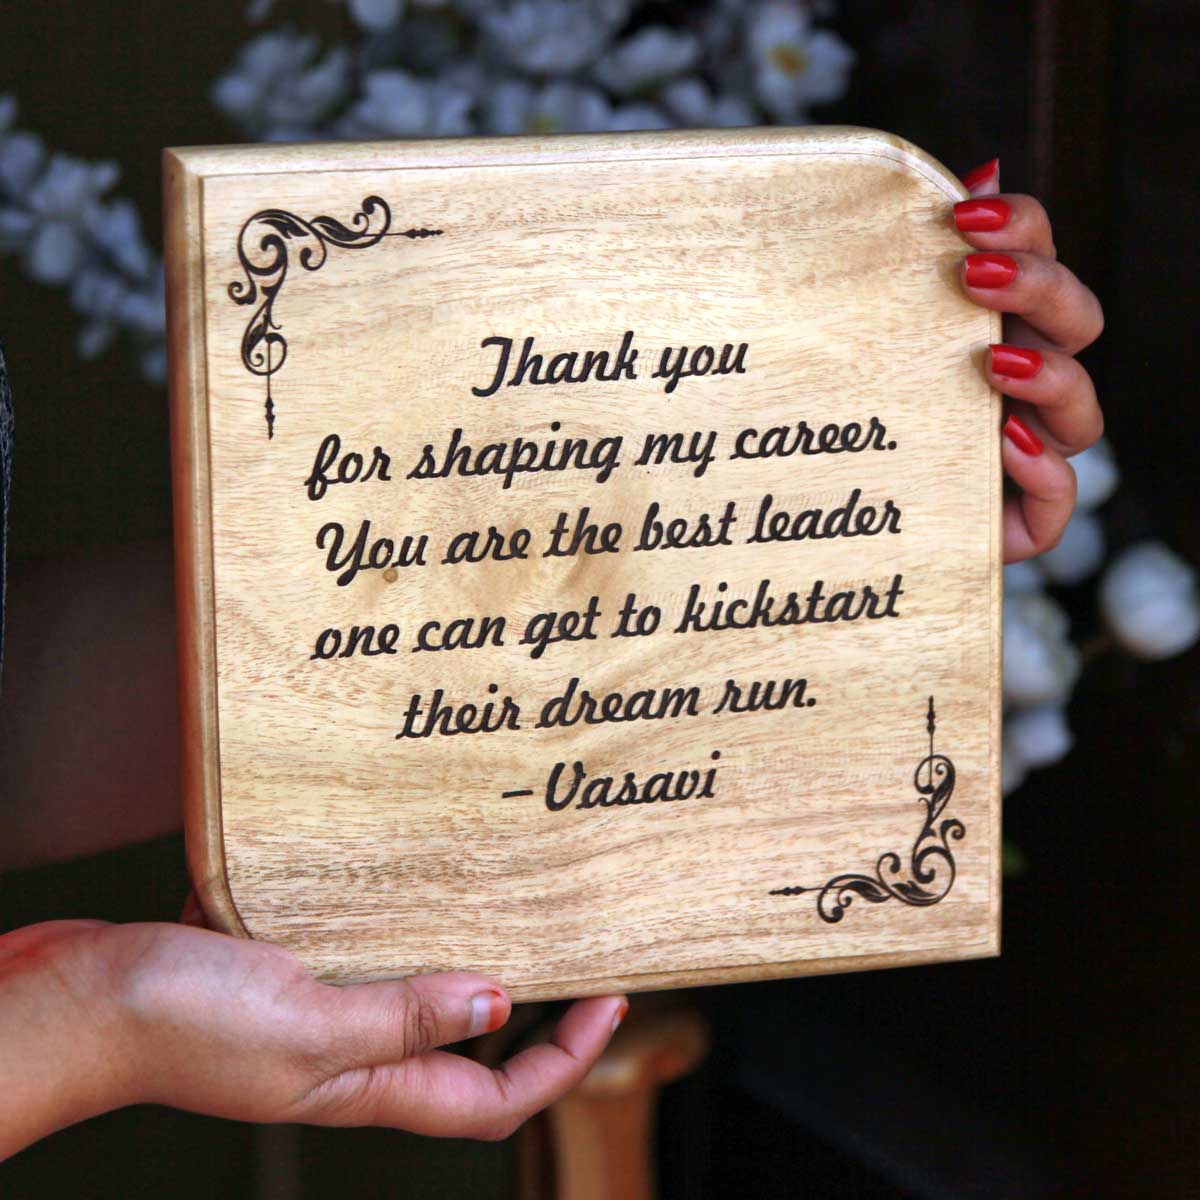 Thank you
for shaping my career.
You are the best leader
one can get to kickstart
their dream run.
– Vasavi